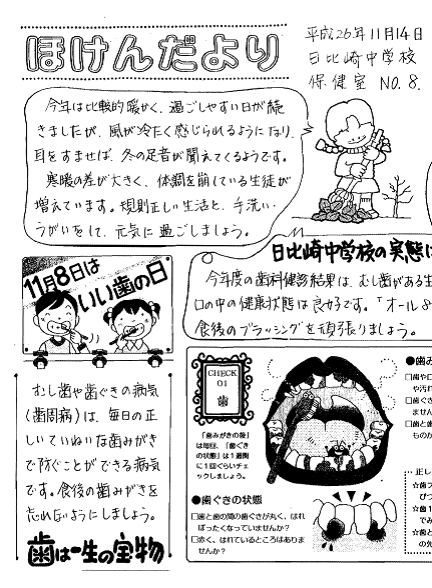 ほけんだより
平成26年11月14日
日比崎中学校
保健室 NO.8.
今年は比較的暖かく、過ごしやすい日が続
きましたが、風が冷たく感じられるようになり、
耳をすませば、冬の足音が聞えてくるようです。
寒暖の差が大きく、体調を崩している生徒が
増えています。規則正しい生活と、手洗い・
うがいをして、元気に過ごしましょう。
11月8日は
いい歯の日
日比崎中学校の実態は
今年度の歯科健診結果は、むし歯がある生
口の中の健康状態は良好です。「オール8
食後のブラッシングを頑張りましょう。
むし歯や歯ぐきの病気
(歯周病)は、毎日の正
しいていねいな歯みがき
で防ぐことができる病気
です。食後の歯みがきを
忘れないようにしましょう。
歯は一生の宝物
CHECK
01
歯
「歯みがきの後」
は毎日、「歯ぐき
の状態」は1週間
に1回ぐらいチェ
ックしましょう。
●歯ぐきの状態
□歯と歯の間の歯ぐきが丸く、はれ
ぼったくなっていませんか?
□赤く、はれているところはありま
せんか?
●歯み
□歯や口
や汚れ
□歯ぐき
ません
□歯と歯
ものか
正し
☆歯ブ
ぴつ
☆歯1
でみ
☆歯と
の先